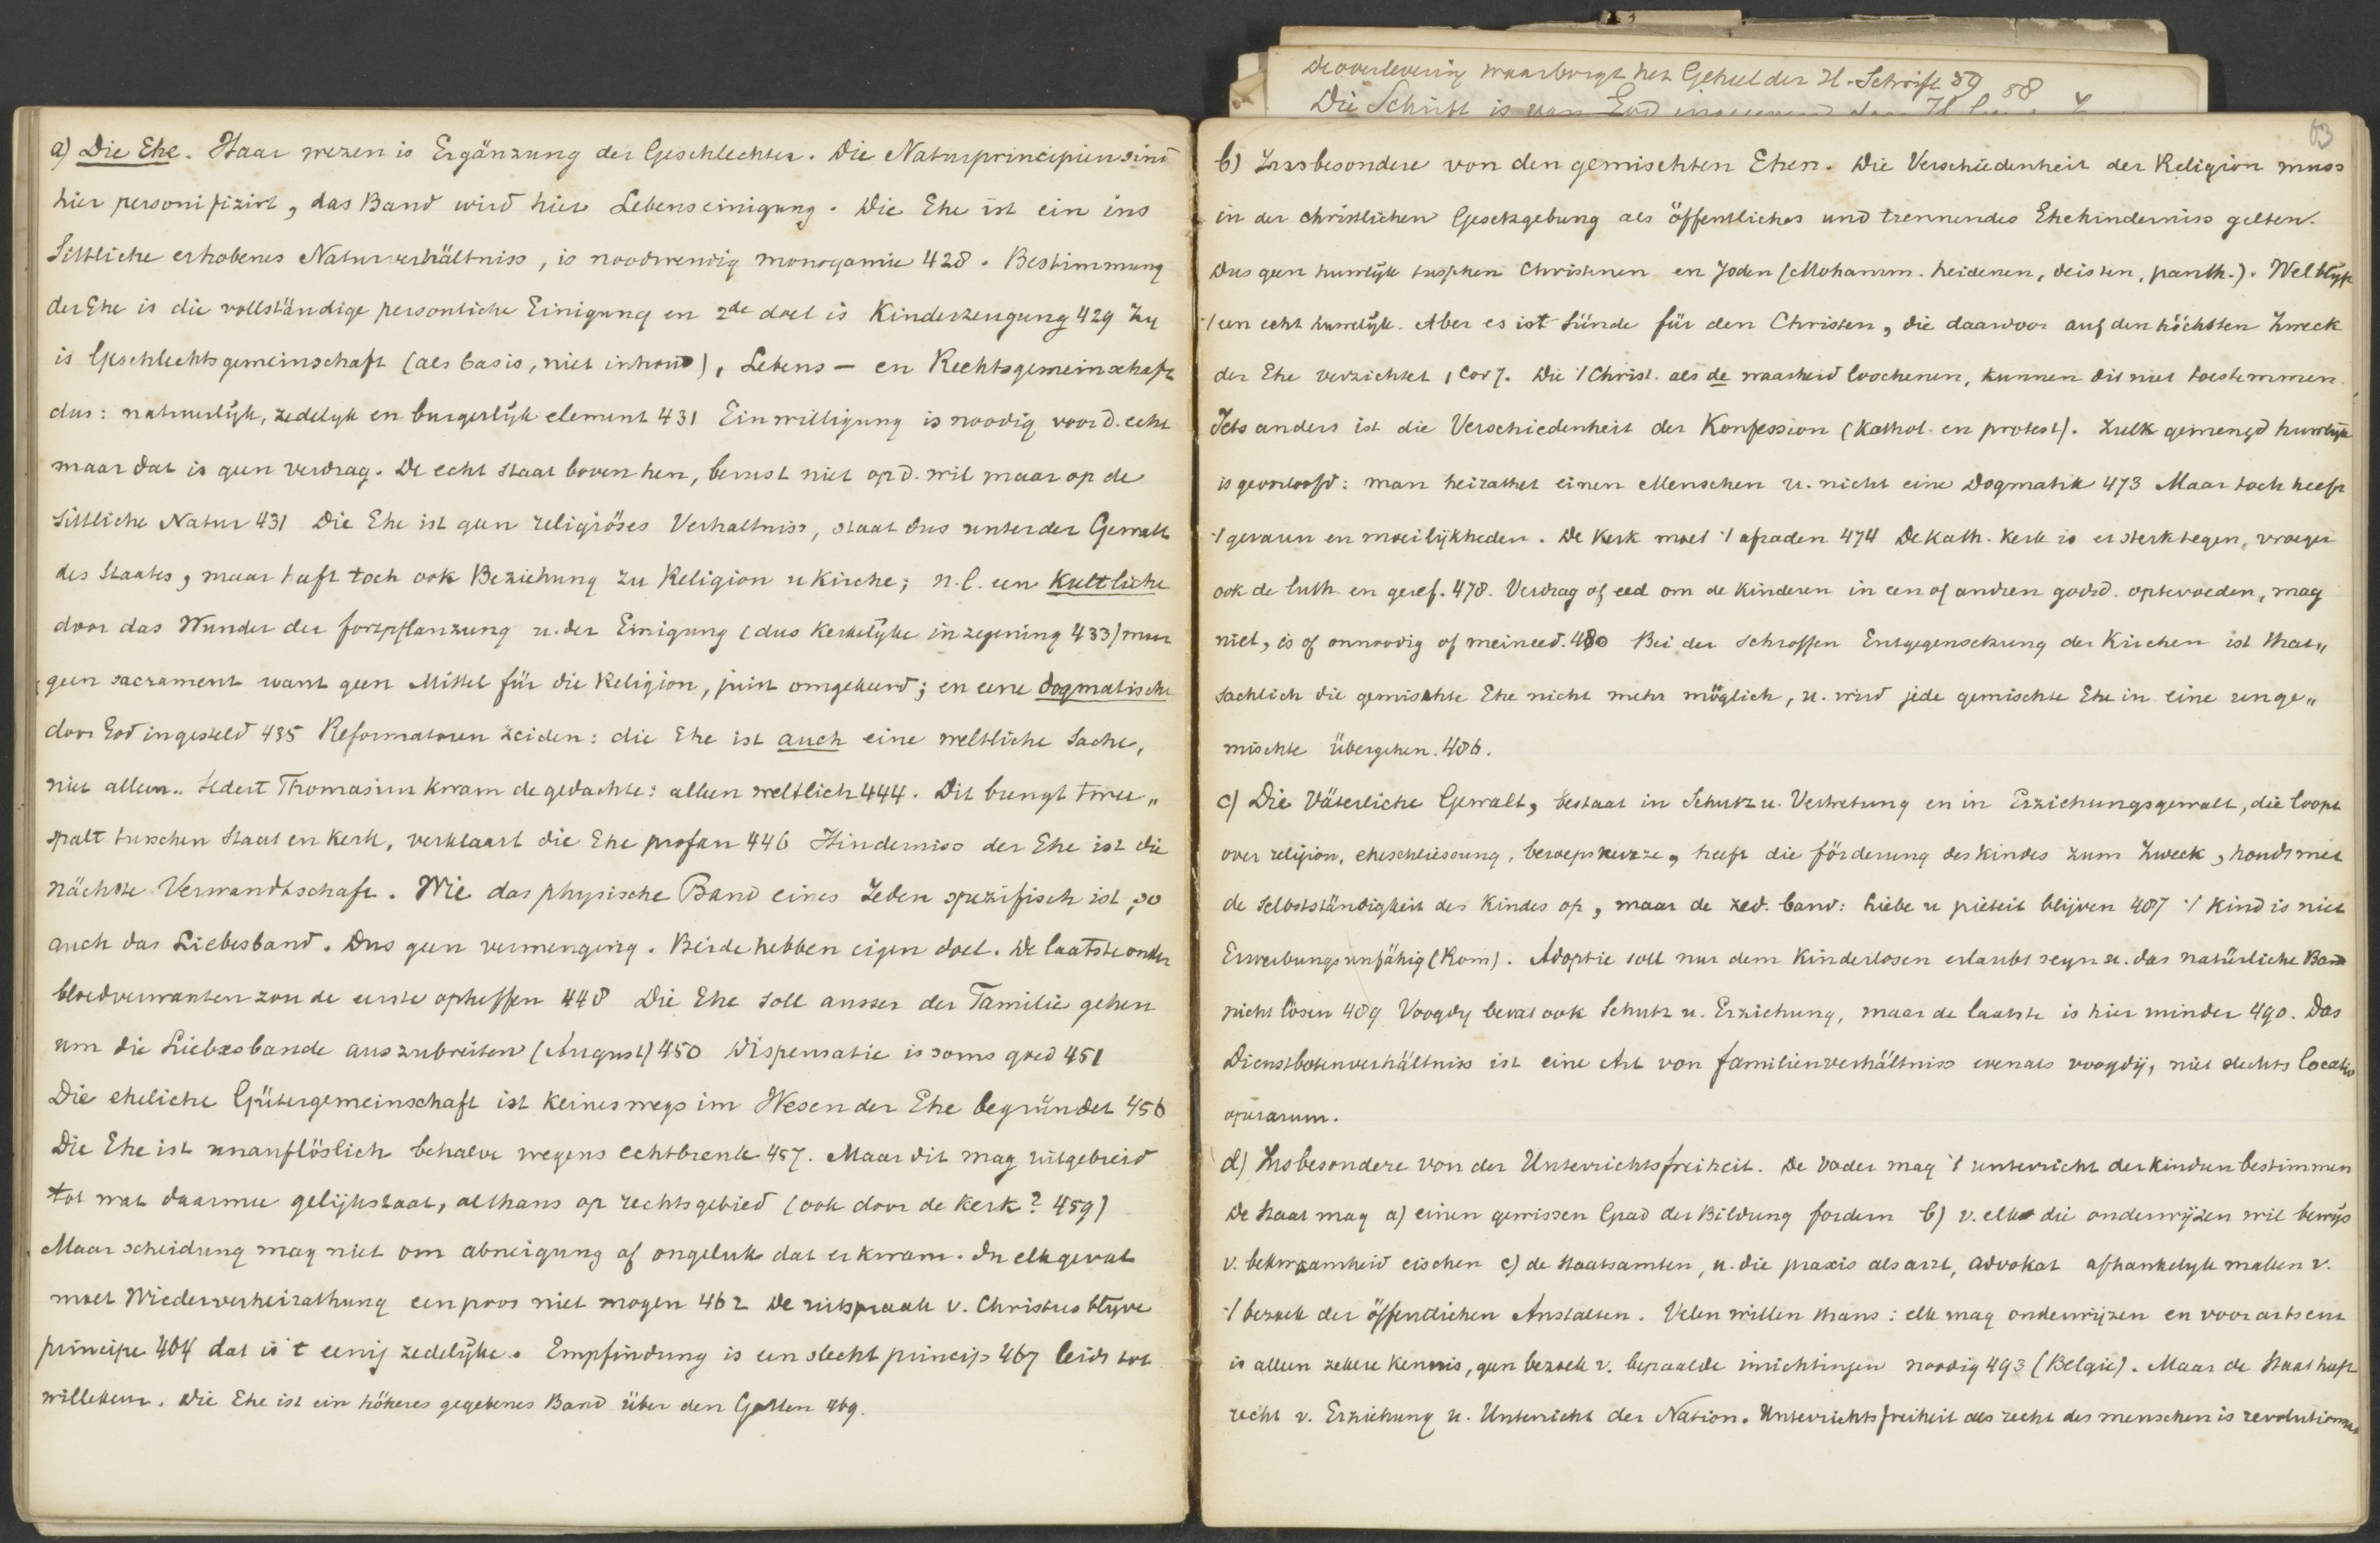 a) Die Ehe. Haar wezen is Ergänzung der Geschlechter. Die Naturprincipien sind
hier personifizirt, das Band wird hier Lebenseinigung. Die Ehe ist ein ins
Sittliche erhobenes Naturverhältniss, is noodwendig monogamie 428. Bestimmung
der Ehe is die vollständige personliche Einigung en 2de doel is Kinderzeugung 429 Zy
is Geschlechtsgemeinschaft (als basis, niet inhoud), Lebens- en Rechtsgemeinschaft
dus: natuurlijk, zedelyk en burgerlyk element 431 Einwilligung is noodig voor d. echt
maar dat is geen verdrag. De echt staat boven hen, berust niet op d. wil maar op de
sittliche Natur 431 Die Ehe ist geen religiöses Verhaltniss, staat dus unter der Gewalt
des Staates, maar heeft toch ook Beziehung zu Religion u Kirche; n.l. een kultliche
door das Wunder der fortpflanzung u. der Einigung (dus kerkelyke inzegening 433) maar
geen sacrament want geen Mittel für die Religion, juist omgekeerd; en eene dogmatische
door God ingesteld 435 Reformatoren zeiden: die Ehe ist auch eine weltliche Sache,
niet alleen. Sedert Thomasius kwam de gedachte: alleen weltlich 444. Dit brengt twee„
spalt tusschen Staat en kerk, verklaart die Ehe profan 446 Hinderniss der Ehe ist die
nächste Verwandtschaft. Wie das physische Band eines Jeden spezifisch ist, so
auch das Liebesband. Dus geen vermenging. Beide hebben eigen doel. De laatste onder
bloedverwanten zou de eerste opheffen 448 Die Ehe soll ausser der Familie gehen
um die Liebesbande auszubreiten (August) 450 Dispensatie is soms goed 451
Die eheliche Gütergemeinschaft ist keineswegs im Wesen der Ehe begründet 456
Die Ehe ist unauflöslich behalve wegens echtbreuk 457. Maar dit mag uitgebreid
tot wat daarmee gelijkstaat, althans op rechtsgebied (ook door de kerk? 459)
Maar scheidung mag niet om abneigung of ongeluk dat er kwam. In elk geval
moet Wiederverheirathung een poos niet mogen 462 De uitspraak v. Christus blyve
principe 464 dat is 't eenig zedelijke. Empfindung is een slecht princip 467 leidt tot
willekeur. Die Ehe ist ein höheres gegebenes Band über den Gatten 469.
De overlevering waarborgt het Geheel der H. Schrift 59 58
Die Schrift is van God
63
b) Insbesondere von den gemischten Ehen. Die Verschiedenheit der Religion muss
in der christlichen Gesetzgebung als öffentliches und trennendes Ehehinderniss gelten.
Dus geen huwlijk tusschen Christenen en Joden (Mohamm. heidenen, deisten, panth.). Wel blijft
't een echt huwelijk. Aber es ist Sünde für den Christen, die daarvoor auf den höchsten Zweck
der Ehe verzichtet, 1 Cor 7. Die 't Christ. als de waarheid loochenen, kunnen dit niet toestemmen.
Iets anders ist die Verschiedenheit der Konfession (Kathol. en protest). Zulk gemengd huwlijk
is geoorloofd: man heirathet einen Menschen u. nicht eine Dogmatik 473 Maar toch heeft
't gevaren en moeilijkheden. De kerk moet 't afraden 474 De Kath. kerk is er sterk tegen, vroeger
ook de luth. en geref. 478. Verdrag of eed om de kinderen in een of andren godsd. optevoeden, mag
niet, is of onnoodig of meineed. 480 Bei der schroffen Entgegensetzung der Kirchen ist that„
sachlich die gemischte Ehe nicht mehr möglich, u. wird jede gemischte Ehe in eine unge„
mischte übergehen. 486.
c) Die Väterliche Gewalt, bestaat in Schutz u. Vertretung en in Erziehungsgewalt, die loopt
over religion, eheschliessung, beroepskeuze, heeft die förderung des Kindes zum Zweck, houdt met
de Selbstständigkeit des Kindes op, maar de zed. band: liebe u pieteit blijven 487 't Kind is niet
Erwerbungsunfähig (Rom). Adoptie soll nur dem Kinderlosen erlaubt seyn u. das natürliche Band
nicht lösen 489 Voogdy bevat ook Schutz u. Erziehung, maar de laatste is hier minder 490. Das
Dienstbotenverhältniss ist eine Art von familienverhältniss evenals voogdij, niet slechts locatio
operarum.
d) Insbesondere von der Unterrichtsfreiheit. De vader mag 't unterricht der kindren bestimmen
De Staat mag a) einen gewissen Grad der Bildung fordern b) v. elk die onderwijzen wil bewijs
v. bekwaamheid eischen c) de Staatsamten, u. die praxis als arzt, advokat afhankelyk maken v.
't bezoek der öffentlichen Anstalten. Velen willen thans: elk mag onderwijzen en voor arts enz
is alleen zekere kennis, geen bezoek v. bepaalde inrichtingen noodig 493 (Belgie). Maar de Staat heeft
recht v. Erziehung u. Unterricht der Nation. Unterrichtsfreiheit als recht des menschen is revolutionair